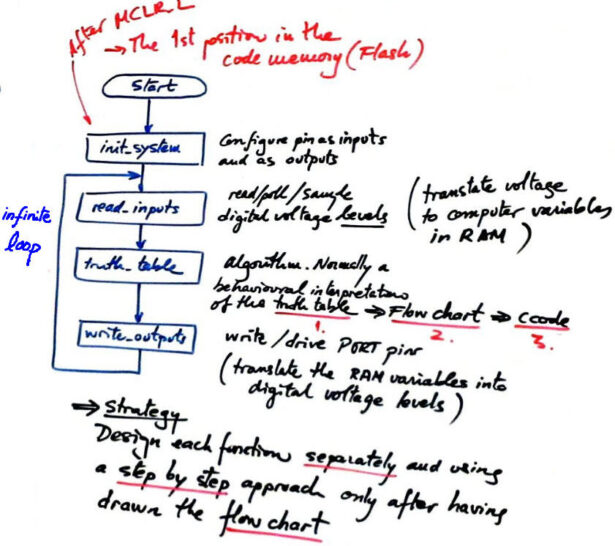 After MCLR_L
→ The 1st position in the
code memory (Flash)
Start
init_system
Configure pin as inputs
and as outputs
infinite
loop
read_inputs
read/poll/sample
digital voltage levels
(translate voltage
to computer variables
in RAM)
truth_table
algorithm. Normally a
behavioural interpretation
of the truth table ⇒ Flow chart ⇒ C code
1. 2. 3.
write_outputs
write/drive PORT pins
(translate the RAM variables into
digital voltage levels)
⇒ Strategy
Design each function separately and using
a step by step approach only after having
drawn the flow chart